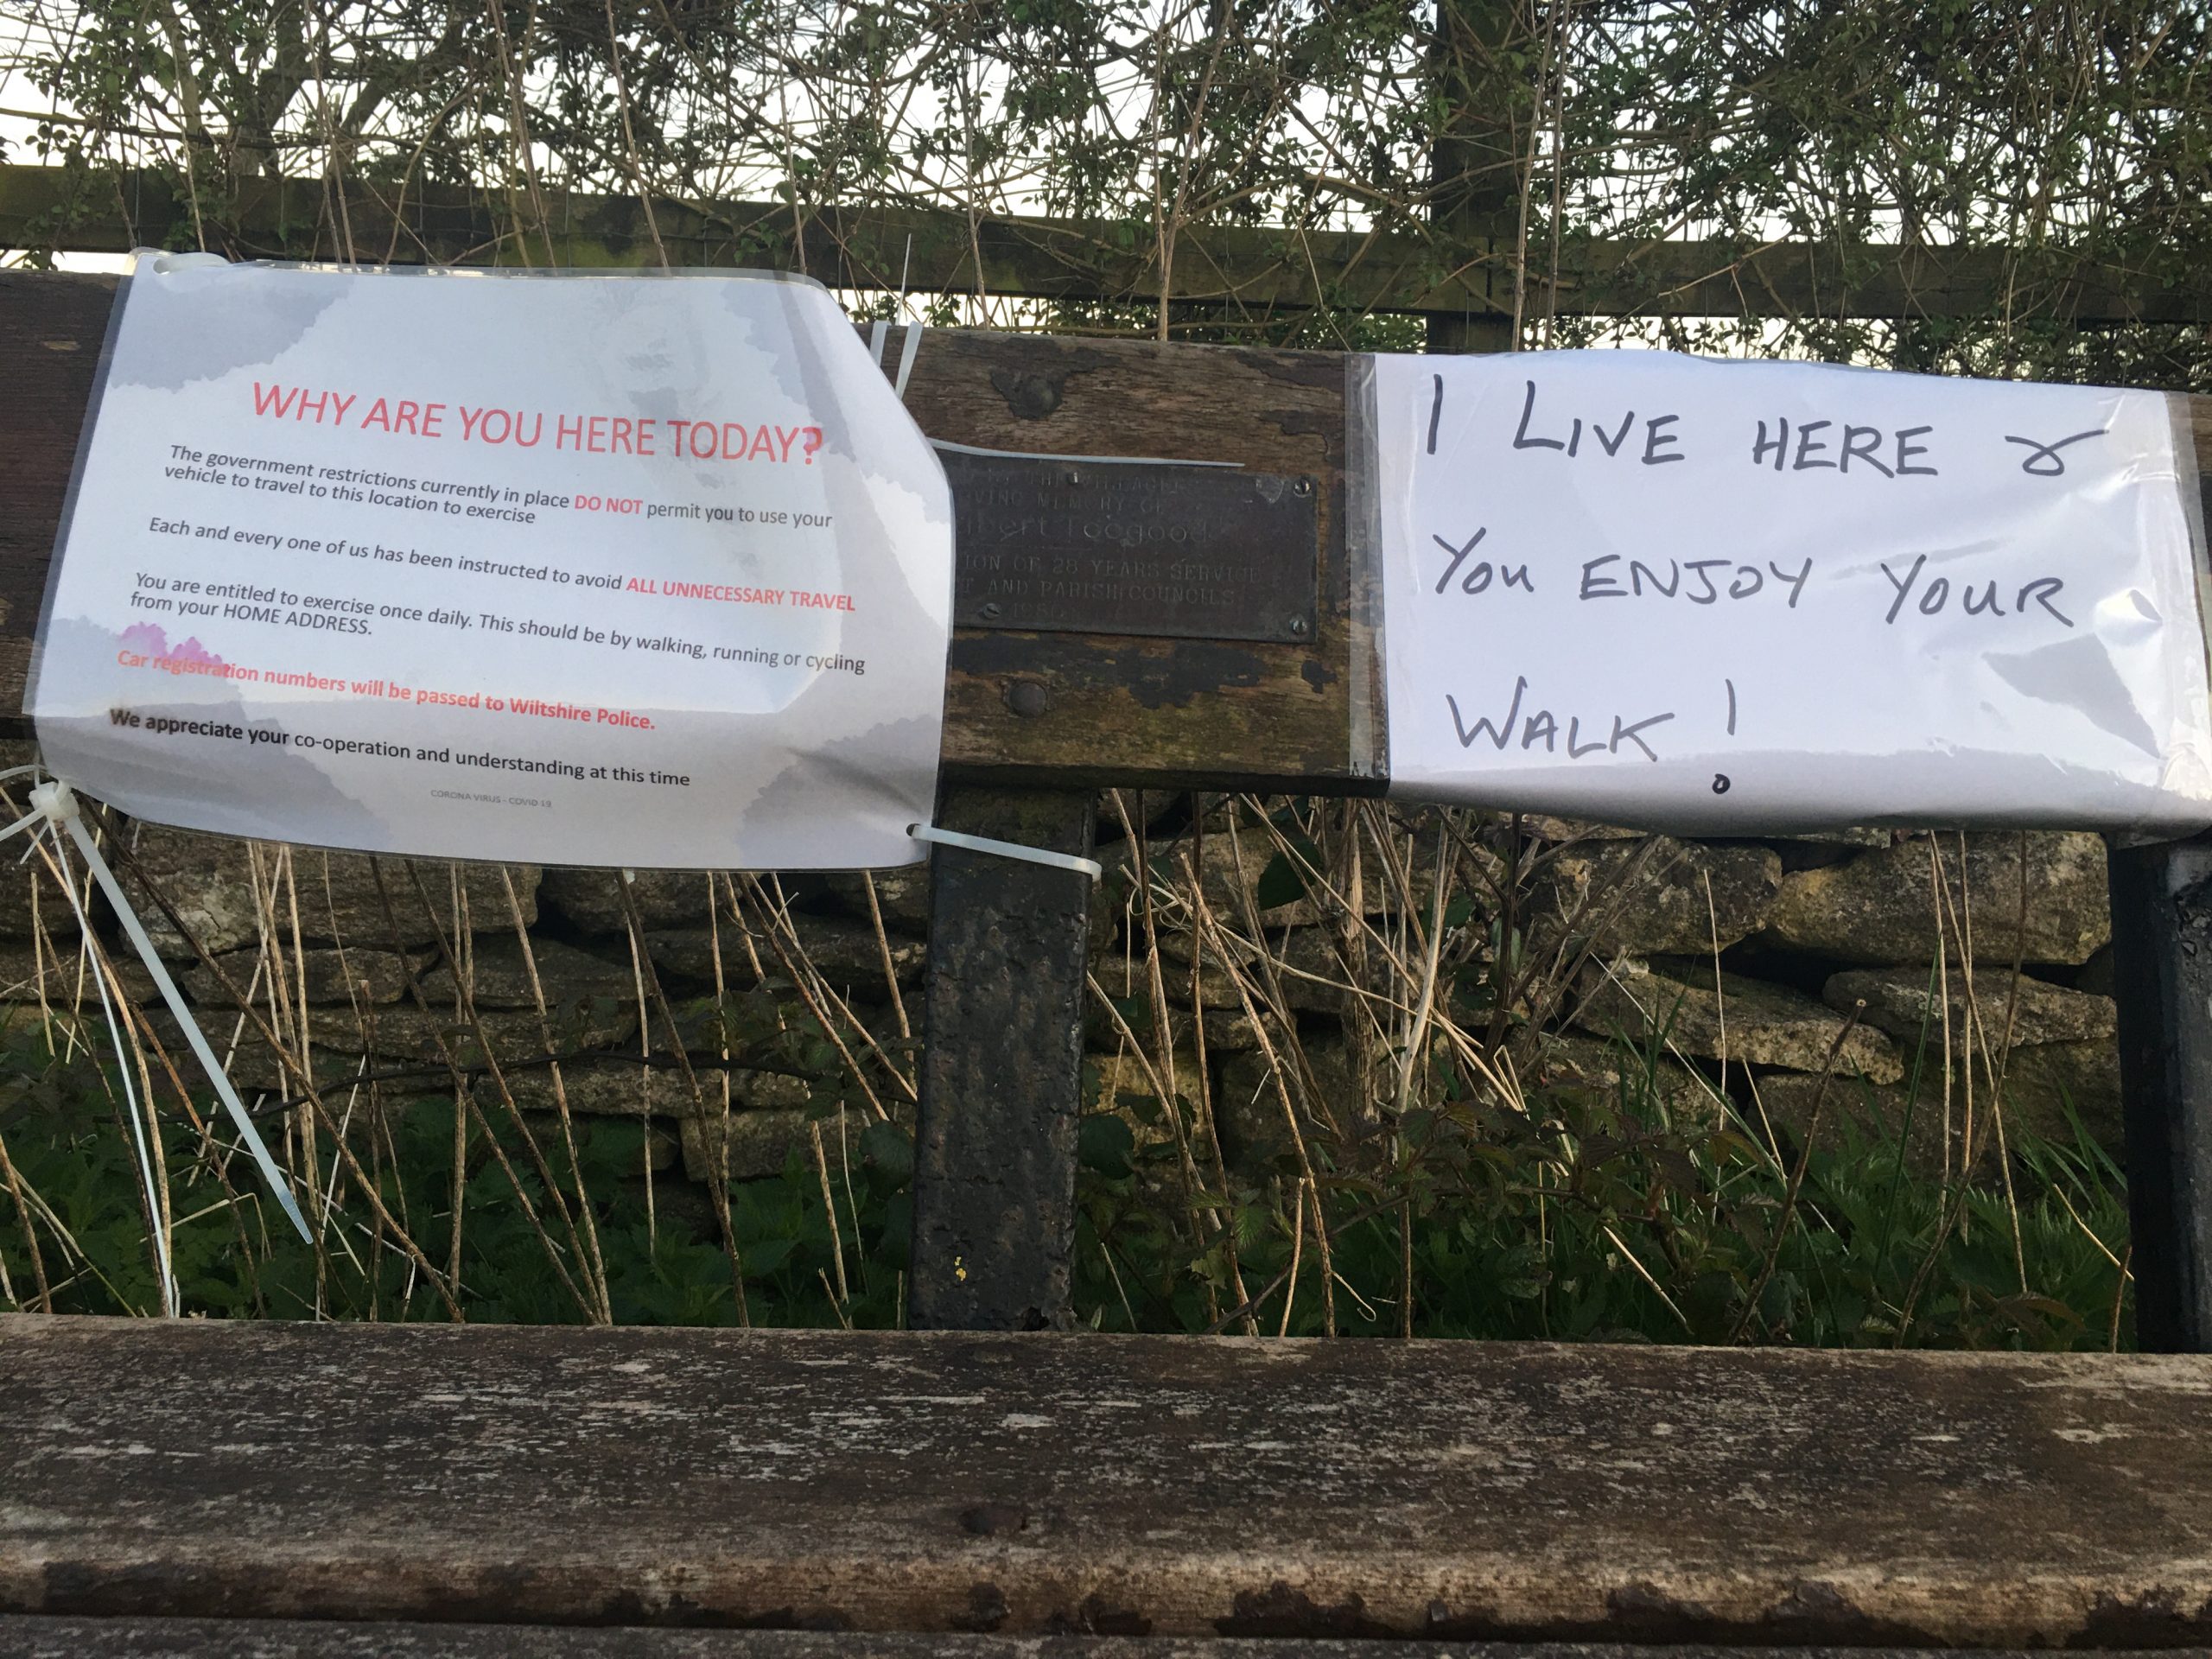 WHY ARE YOU HERE TODAY?
The government restrictions currently in place DO NOT permit you to use your
vehicle to travel to this location to exercise
Each and every one of us has been instructed to avoid ALL UNNECESSARY TRAVEL
You are entitled to exercise once daily. This should be by walking, running or cycling
from your HOME ADDRESS.
Car registration numbers will be passed to Wiltshire Police.
We appreciate your co-operation and understanding at this time
CORONA VIRUS - COVID 19
MEMORY OF
Toogood
OF 28 YEARS SERVICE
AND PARISH COUNCILS
I LIVE HERE &
YOU ENJOY YOUR
WALK!